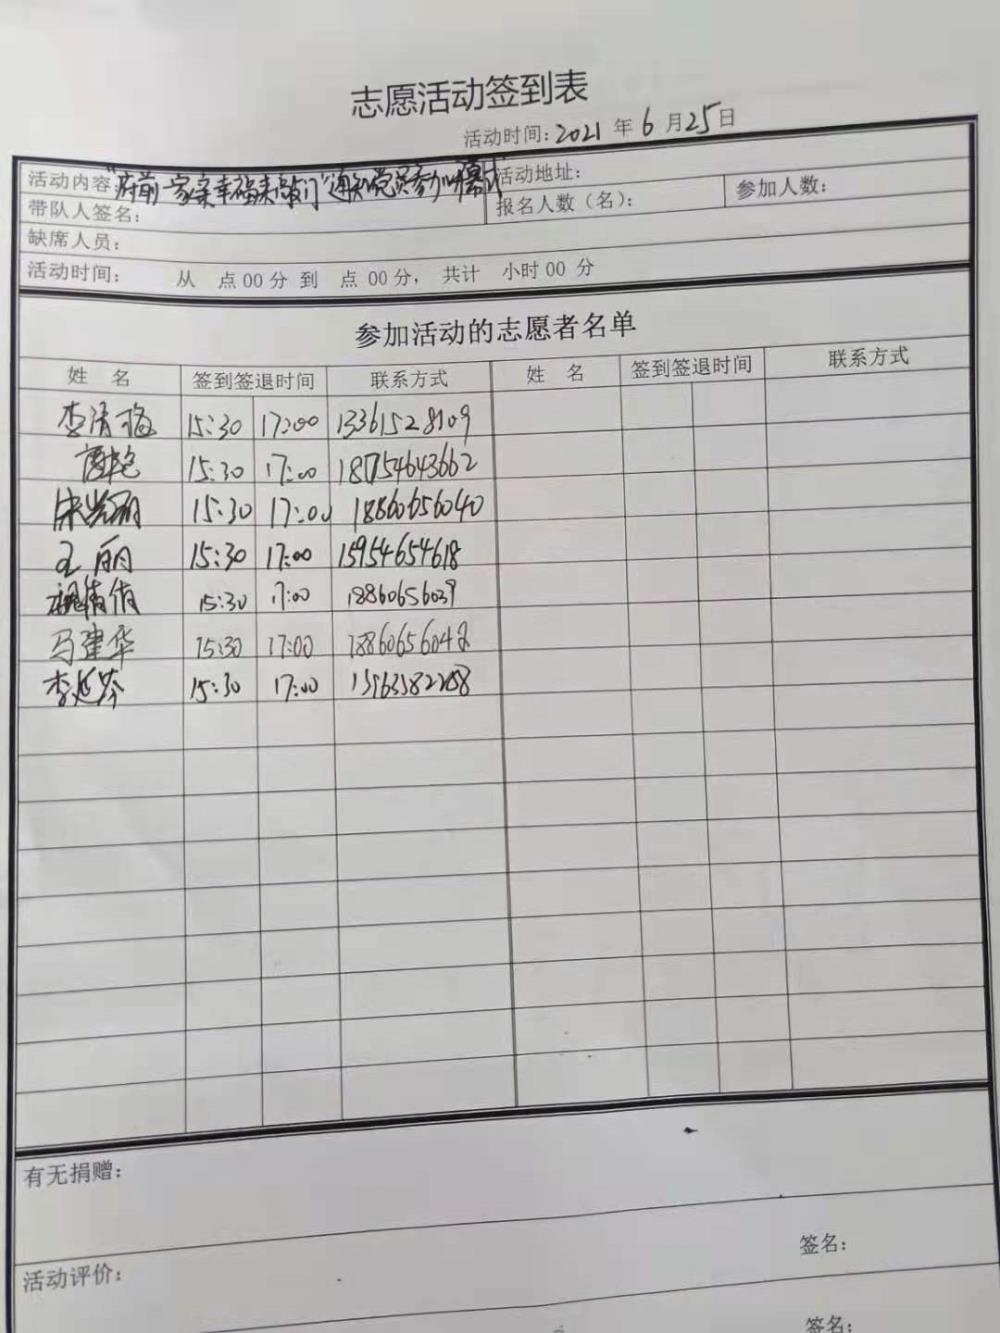 志愿活动签到表
活动时间：2021 年 6 月 25 日
活动内容："府前一家亲幸福来敲门"通知党员参加开幕式 活动地址：
带队人签名： 报名人数（名）： 参加人数：
缺席人员：
活动时间： 从 点 00 分 到 点 00 分， 共计 小时 00 分
参加活动的志愿者名单
姓 名 签到签退时间 联系方式 姓 名 签到签退时间 联系方式
李清梅 15:30 17:00 13361528109
15:30 17:00 18754643662
15:30 17:00 18860656040
王丽 15:30 17:00 15954654618
倩倩 15:30 17:00 18860656039
马建华 15:30 17:00
李延芬 15:30 17:00
有无捐赠：
签名：
活动评价：
签名：